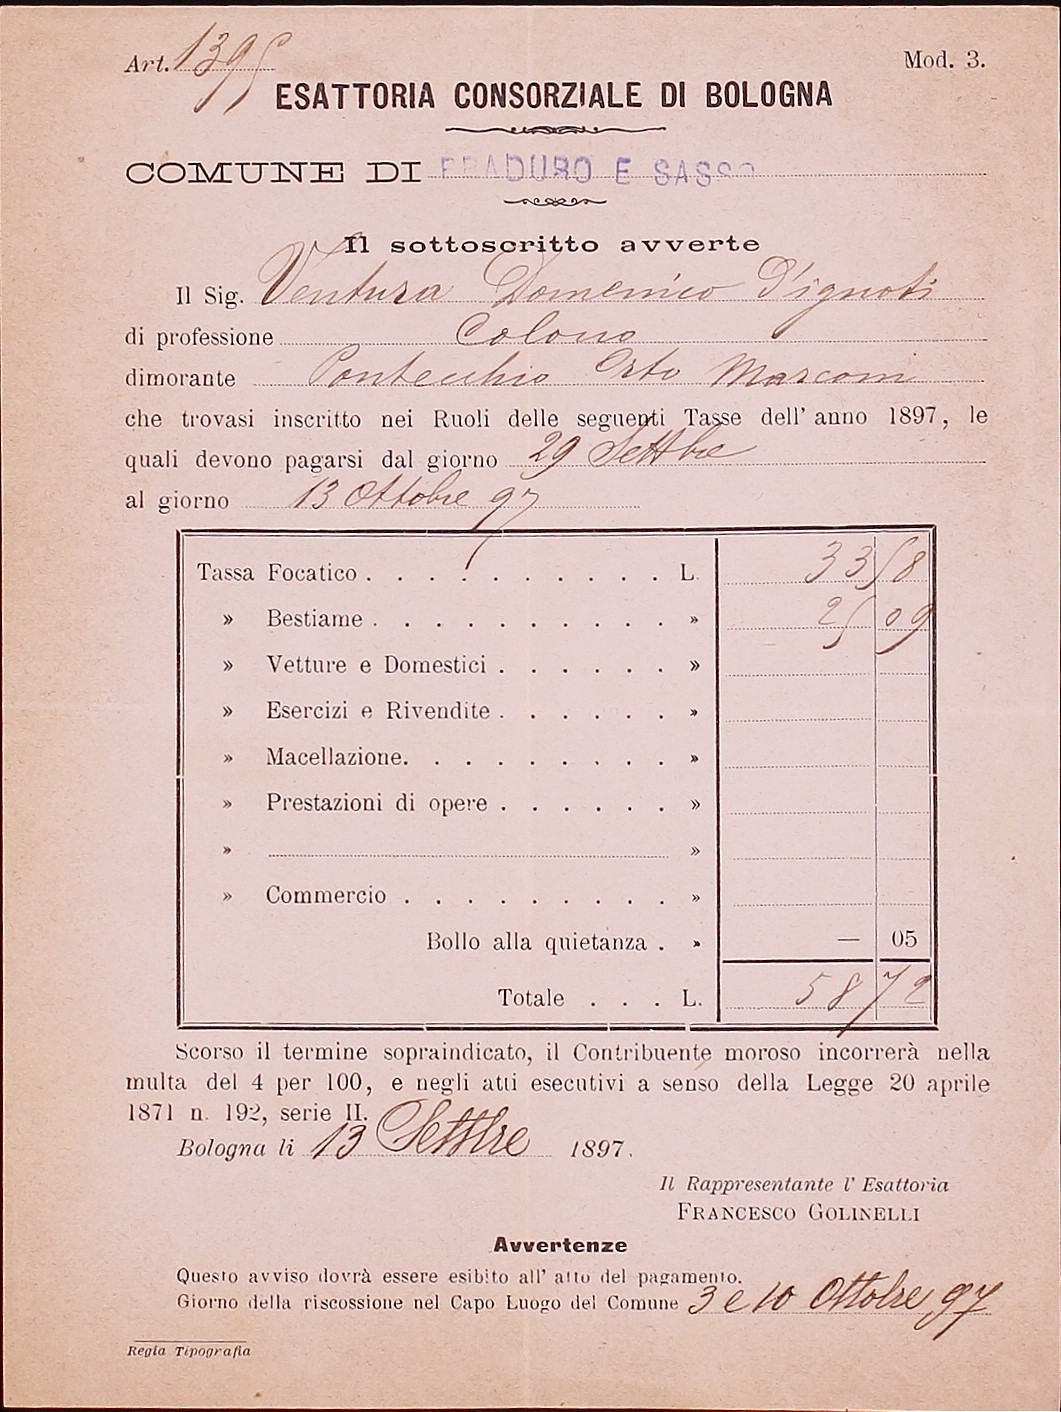 Art. 1395
Mod. 3.
ESATTORIA CONSORZIALE DI BOLOGNA
COMUNE DI PRADURO E SASSO
Il sottoscritto avverte
Il Sig. Ventura Domenico D'ignoti
di professione Colono
dimorante Pontecchio Orto Marconi
che trovasi inscritto nei Ruoli delle seguenti Tasse dell' anno 1897, le
quali devono pagarsi dal giorno 29 Settbre
al giorno 13 Ottobre 97
Tassa Focatico . . . . . . . . . . . L. 33 58
» Bestiame . . . . . . . . . . . » 25 09
» Vetture e Domestici . . . . . . »
» Esercizi e Rivendite . . . . . . »
» Macellazione. . . . . . . . . . »
» Prestazioni di opere . . . . . . »
» »
» Commercio . . . . . . . . . . »
Bollo alla quietanza . » — 05
Totale . . . L. 58 72
Scorso il termine sopraindicato, il Contribuente moroso incorrerà nella
multa del 4 per 100, e negli atti esecutivi a senso della Legge 20 aprile
1871 n. 192, serie II.
Bologna li 13 Settbre 1897.
Il Rappresentante l' Esattoria
FRANCESCO GOLINELLI
Avvertenze
Questo avviso dovrà essere esibito all' atto del pagamento.
Giorno della riscossione nel Capo Luogo del Comune 3 e 10 Ottobre 97
Regia Tipografia